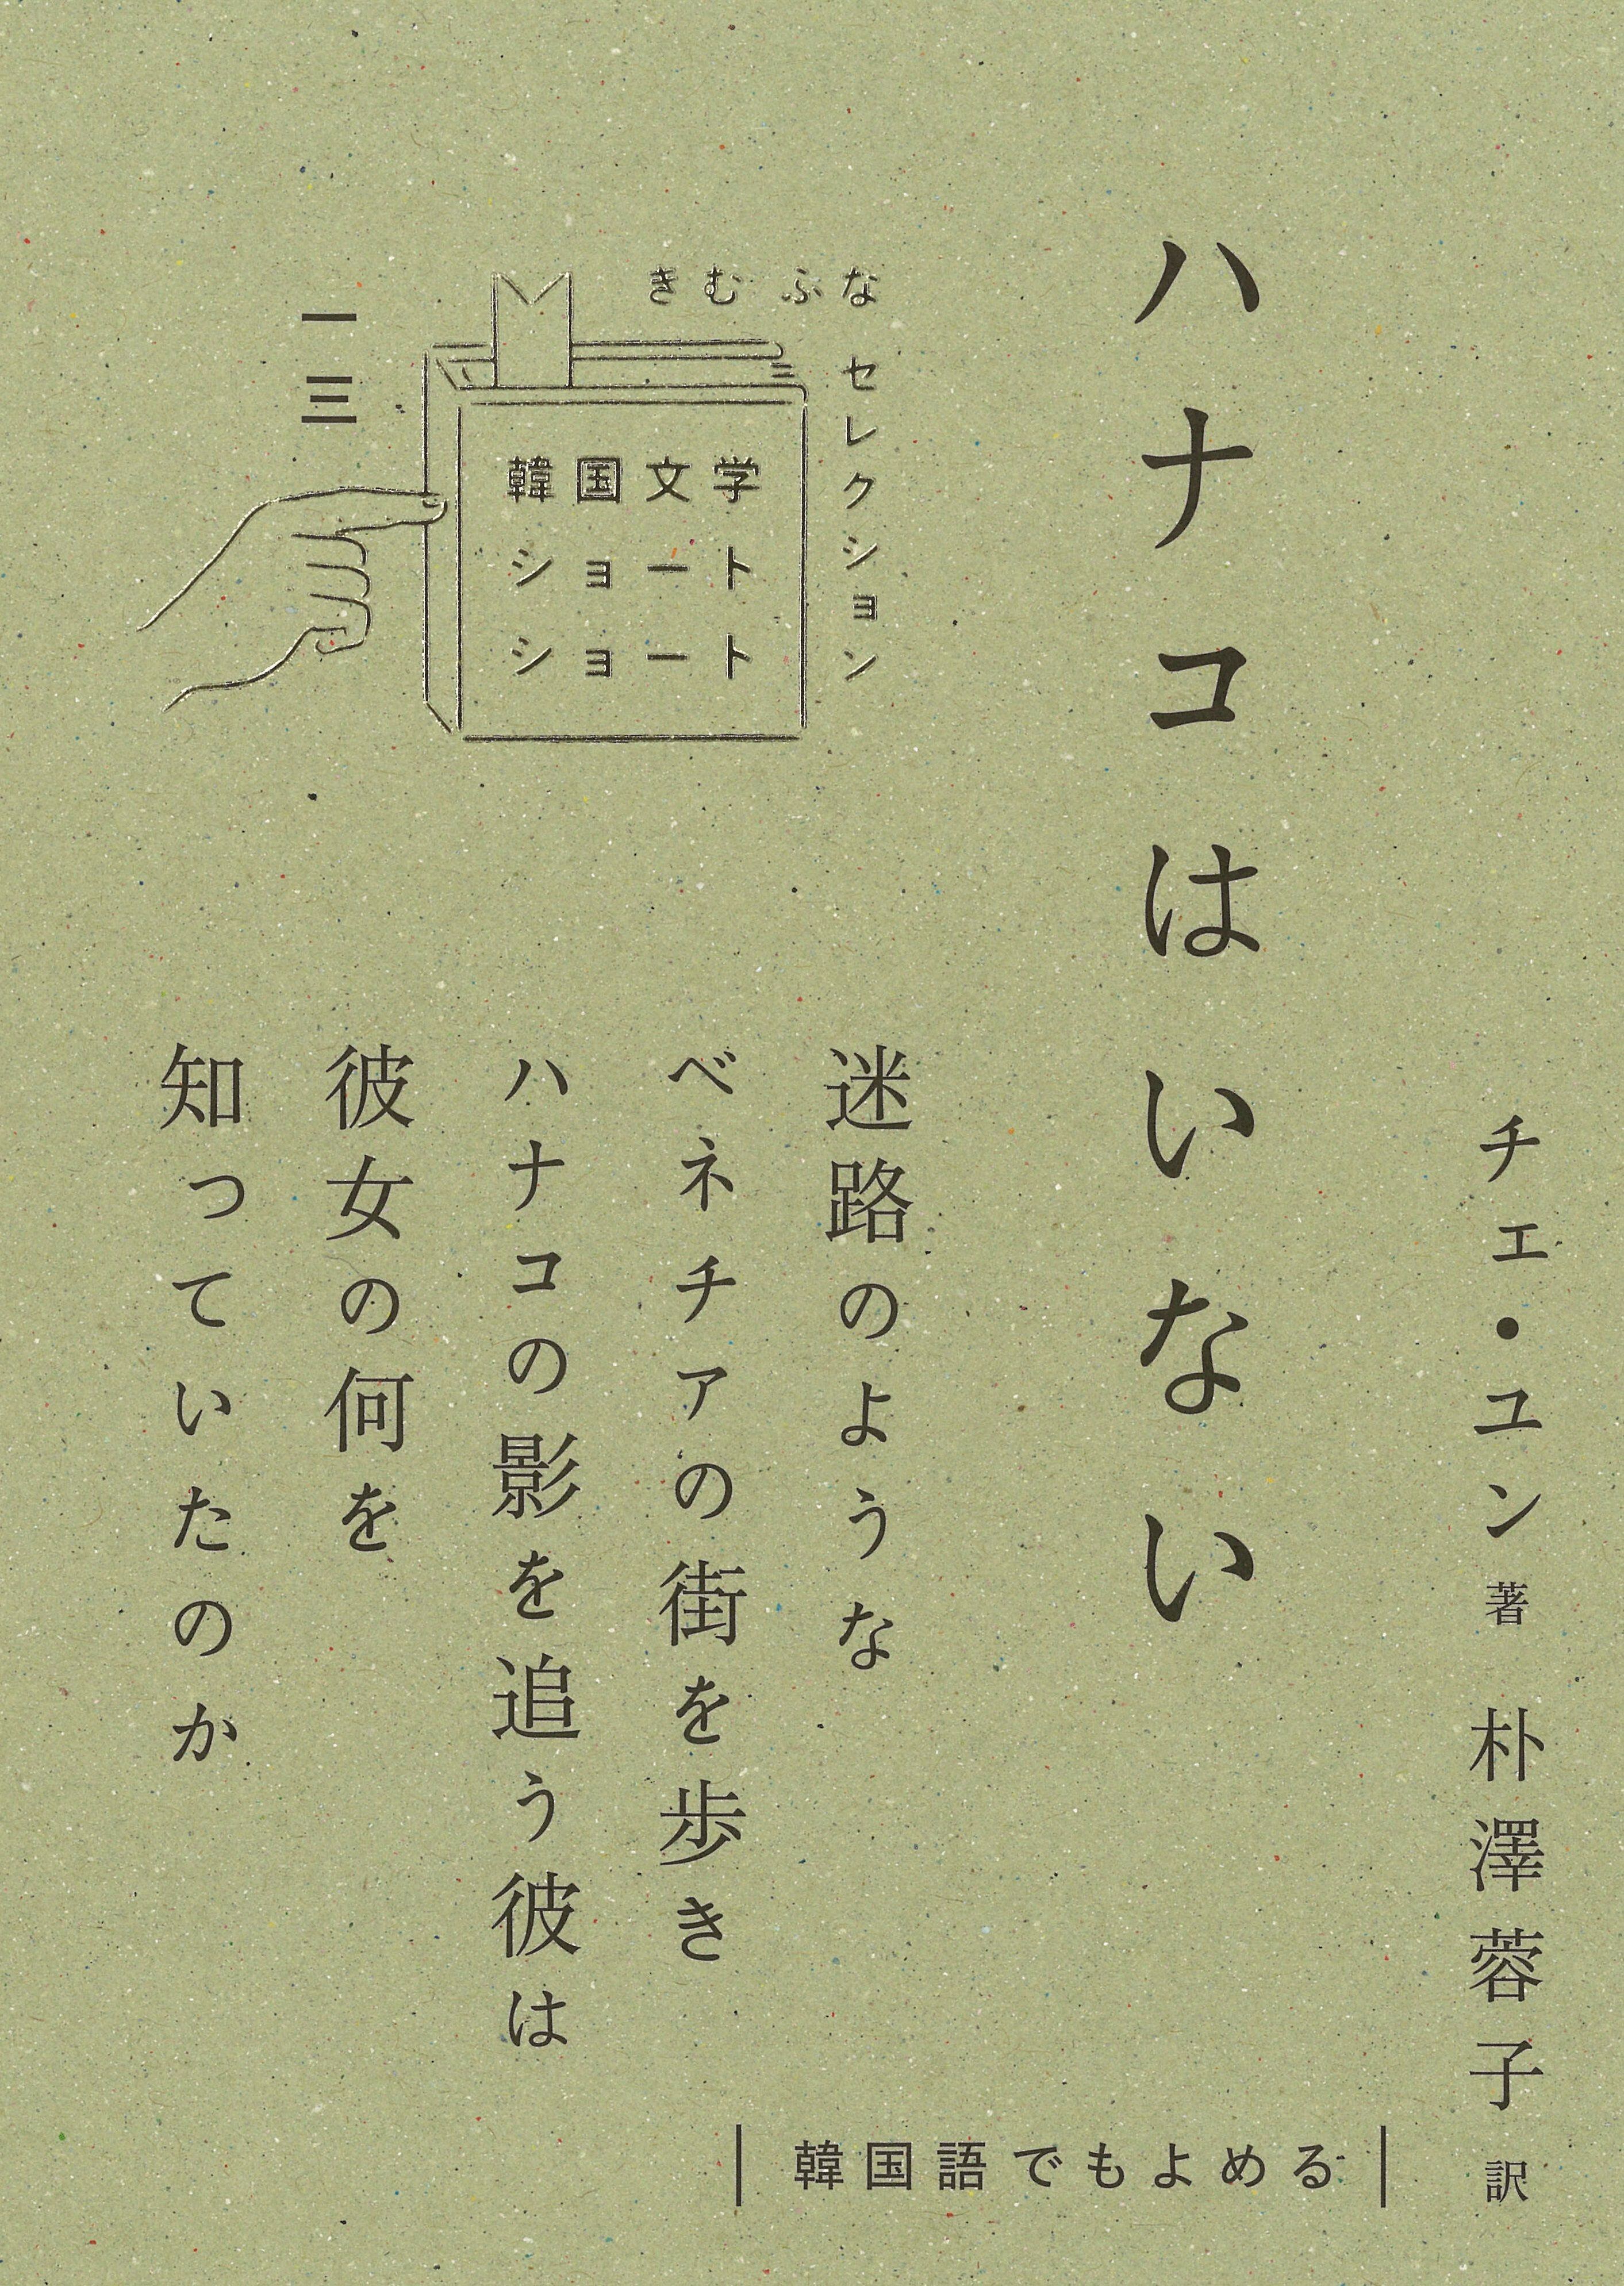 チェ・ユン 著 朴澤蓉子 訳
ハナコはいない
きむ ふな
セレクション
韓国文学
ショート
ショート
一三
迷路のような
ベネチアの街を歩き
ハナコの影を追う彼は
彼女の何を
知っていたのか
韓国語でもよめる